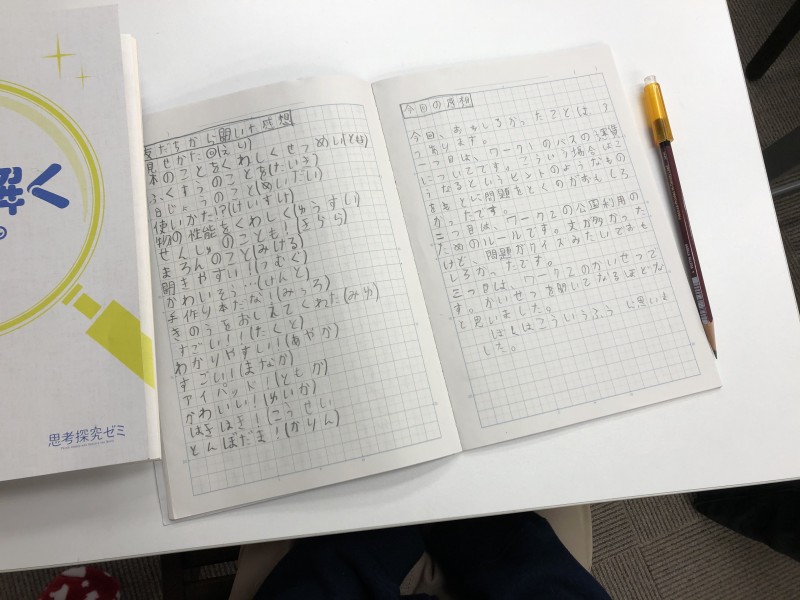 解く
思考探究ゼミ
友だちから聞いた感想
見せかた◎(えり)
本のことをくわしくせつめい(とも)
ふくすうのことを(たいき)
日じょうのことを(めいたい)
使いかた!?(けいすけ)
物の性能をくわしく(ゆうすい)
せんしゅのことも!(きらら)
まろんのこと(みける)
聞きやすい!(つむぐ)
かわいそう…(けんと)
手作り本だな!(みっろ)
きのうをおしえてくわた(みゆ)
すごい!!(たくと)
わかりやすい!(あやか)
すごい!(まなか)
アイパッド!(ともか)
かわいい!(ゆいか)
はきはき!(こうせい
とんぼだま!(かりん)
今日の感想
今日、おもしろかったことは、3
つあります。
一つ目は、ワーク1のバスの運賃
についてです。こういう場合はこ
うなるというヒントのようなもの
を元に問題をとくのがおもしろ
かったです。
二つ目は、ワーク2の公園利用の
ためのルールです。文が多かった
けど、問題がクイズみたいでおも
しろかったです。
三つ目は、ワーク2のかいせつで
す。かいせつを聞いてなるほどな
と思いました。
ぼくはこういうふうに思いま
した。